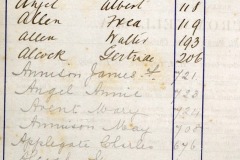 Angel Albert 118
Allen Inca 119
Allen Walter 193
Alcock Gertrude 206
Annison James 721
Angel Annie 723
Avent Mary 714
Annison May 708
Applegate 676